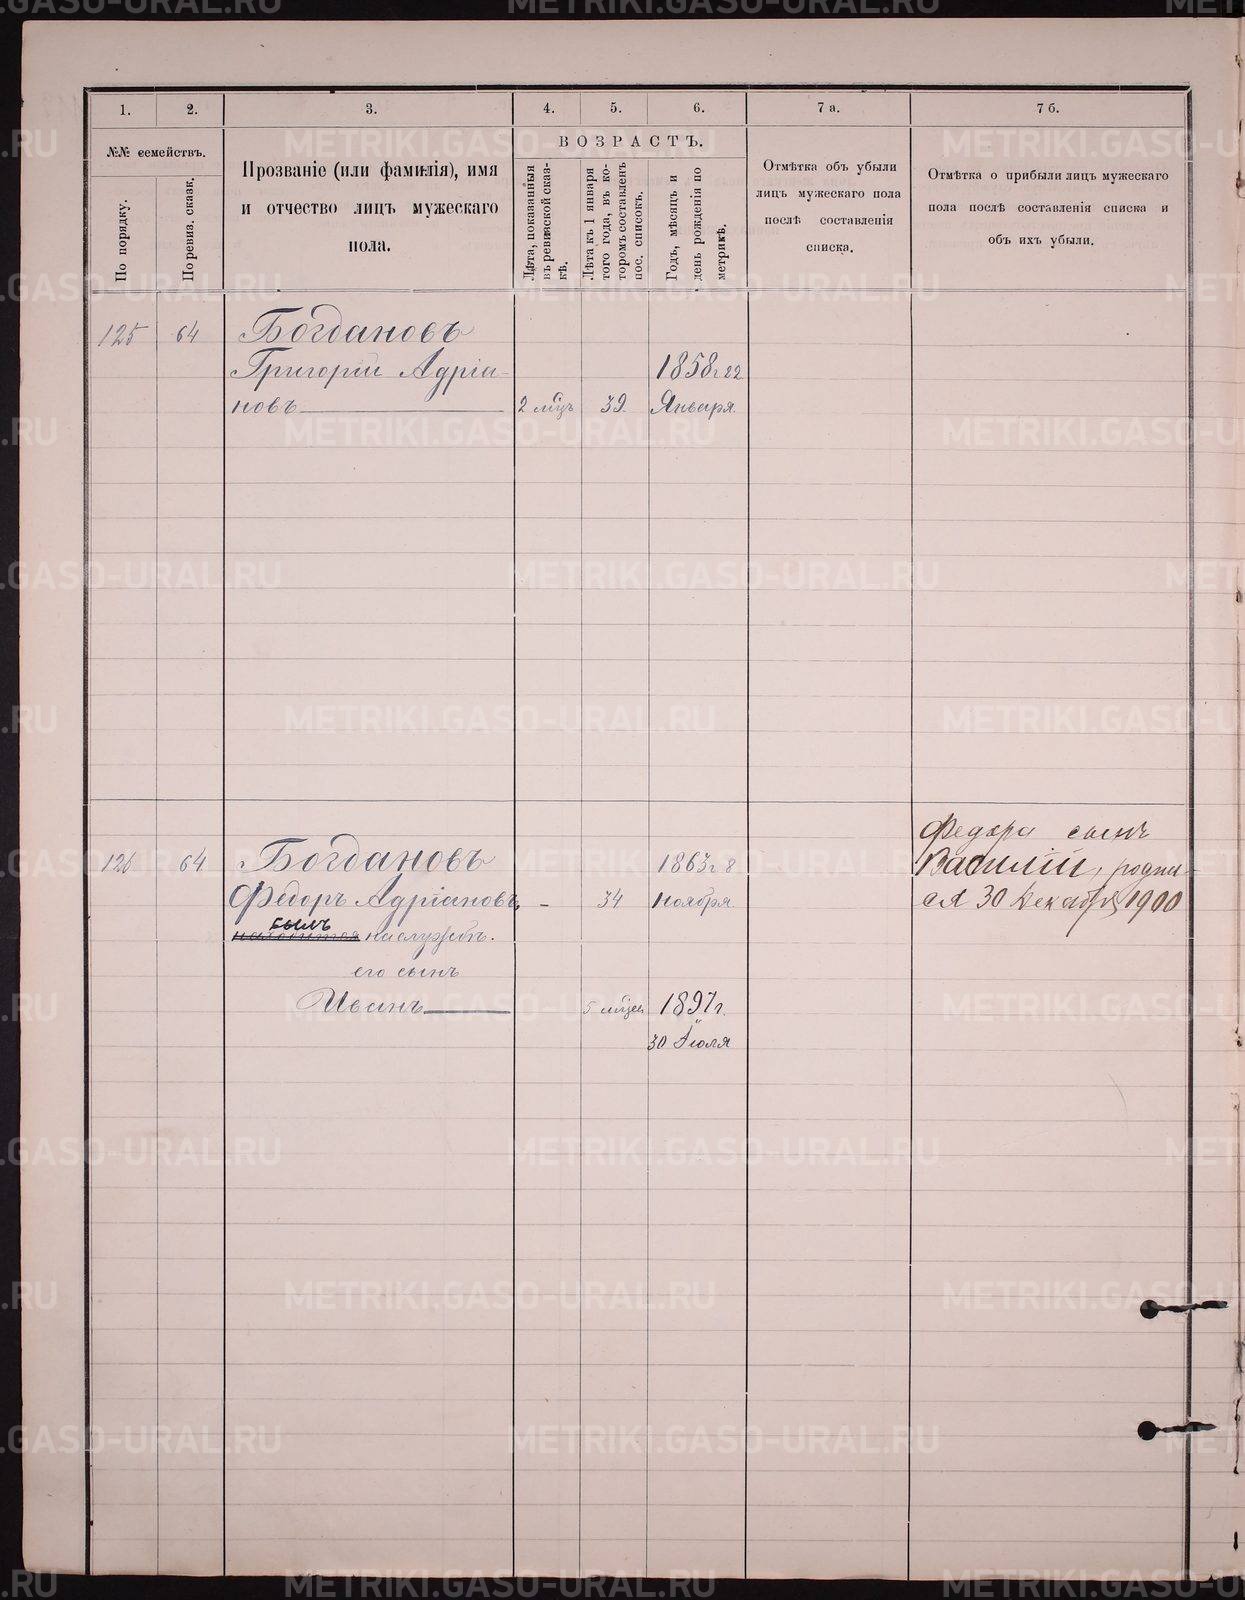 1.
2.
3.
4.
5.
6.
7 а.
7 б.
№№ семействъ.
По порядку.
По ревиз. сказк.
Прозваніе (или фамилія), имя
и отчество лицъ мужескаго
пола.
ВОЗРАСТЪ.
Лѣта, показанныя
въ ревизской сказ-
кѣ.
Лѣта къ 1 января
того года, въ ко-
торомъ составленъ
пос. списокъ.
Годъ, мѣсяцъ и
день рожденія по
метрикѣ.
Отмѣтка объ убыли
лицъ мужескаго пола
послѣ составленія
списка.
Отмѣтка о прибыли лицъ мужескаго
пола послѣ составленія списка и
объ ихъ убыли.
125 64 Богдановъ
Григорій Адріа- 1858 г 22
новъ 2 мѣц 39. Января.
Федора сынъ
126 64 Богдановъ 1863 г 8 Василій, родил-
Федоръ Адріановъ, - 34 ноября. ся 30 Декабря 1900
былъ
находится на службѣ.
его сынъ
Иванъ 5 мѣцев 1897 г.
30 Іюля
METRIKI.GASO-URAL.RU